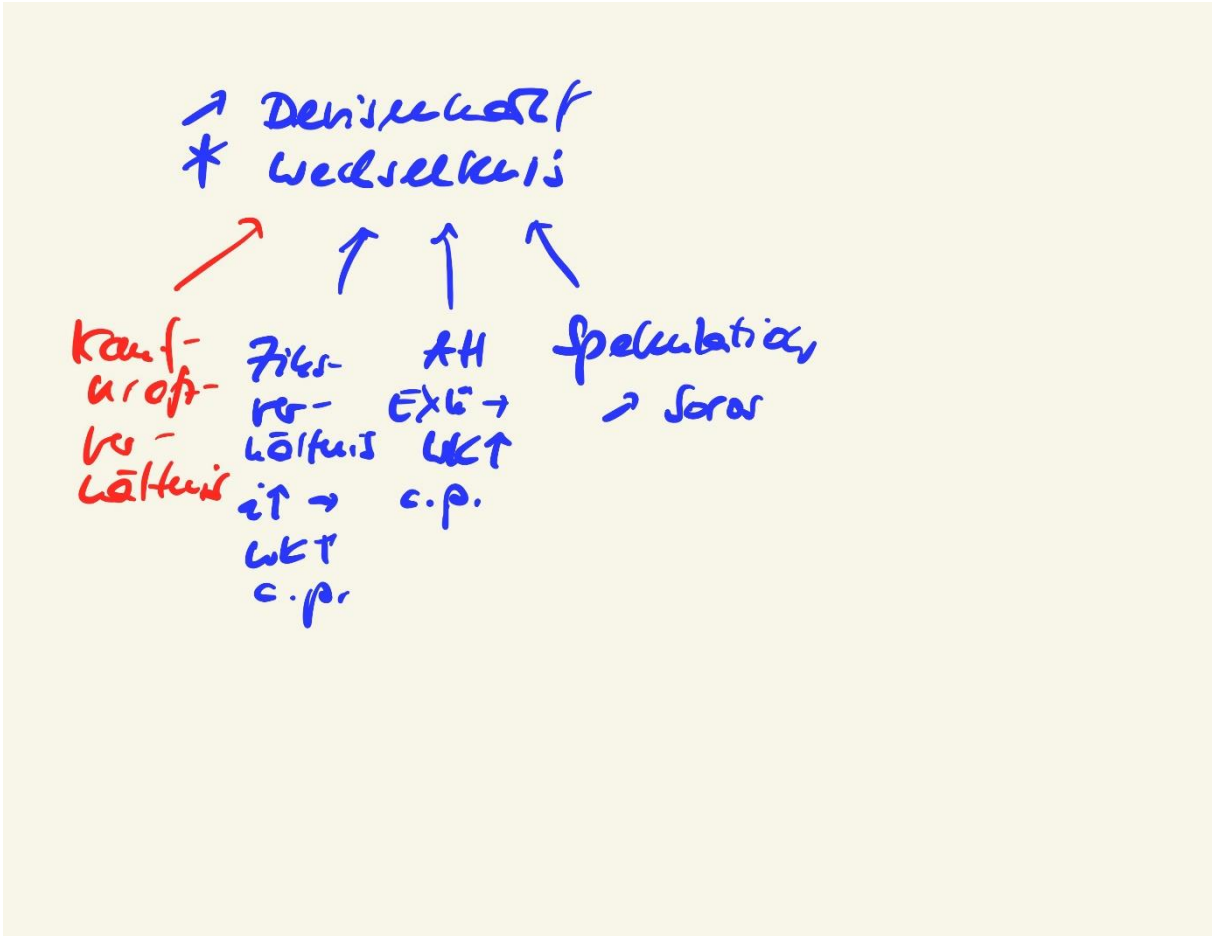 ↗ Devisenmarkt
* Wechselkurs
Kauf-
kraft-
ver-
hältnis
Zins-
ver-
hältnis
i↑ →
WK↑
c.p.
AH
EXÜ →
WK↑
c.p.
Spekulation
↗ Soros